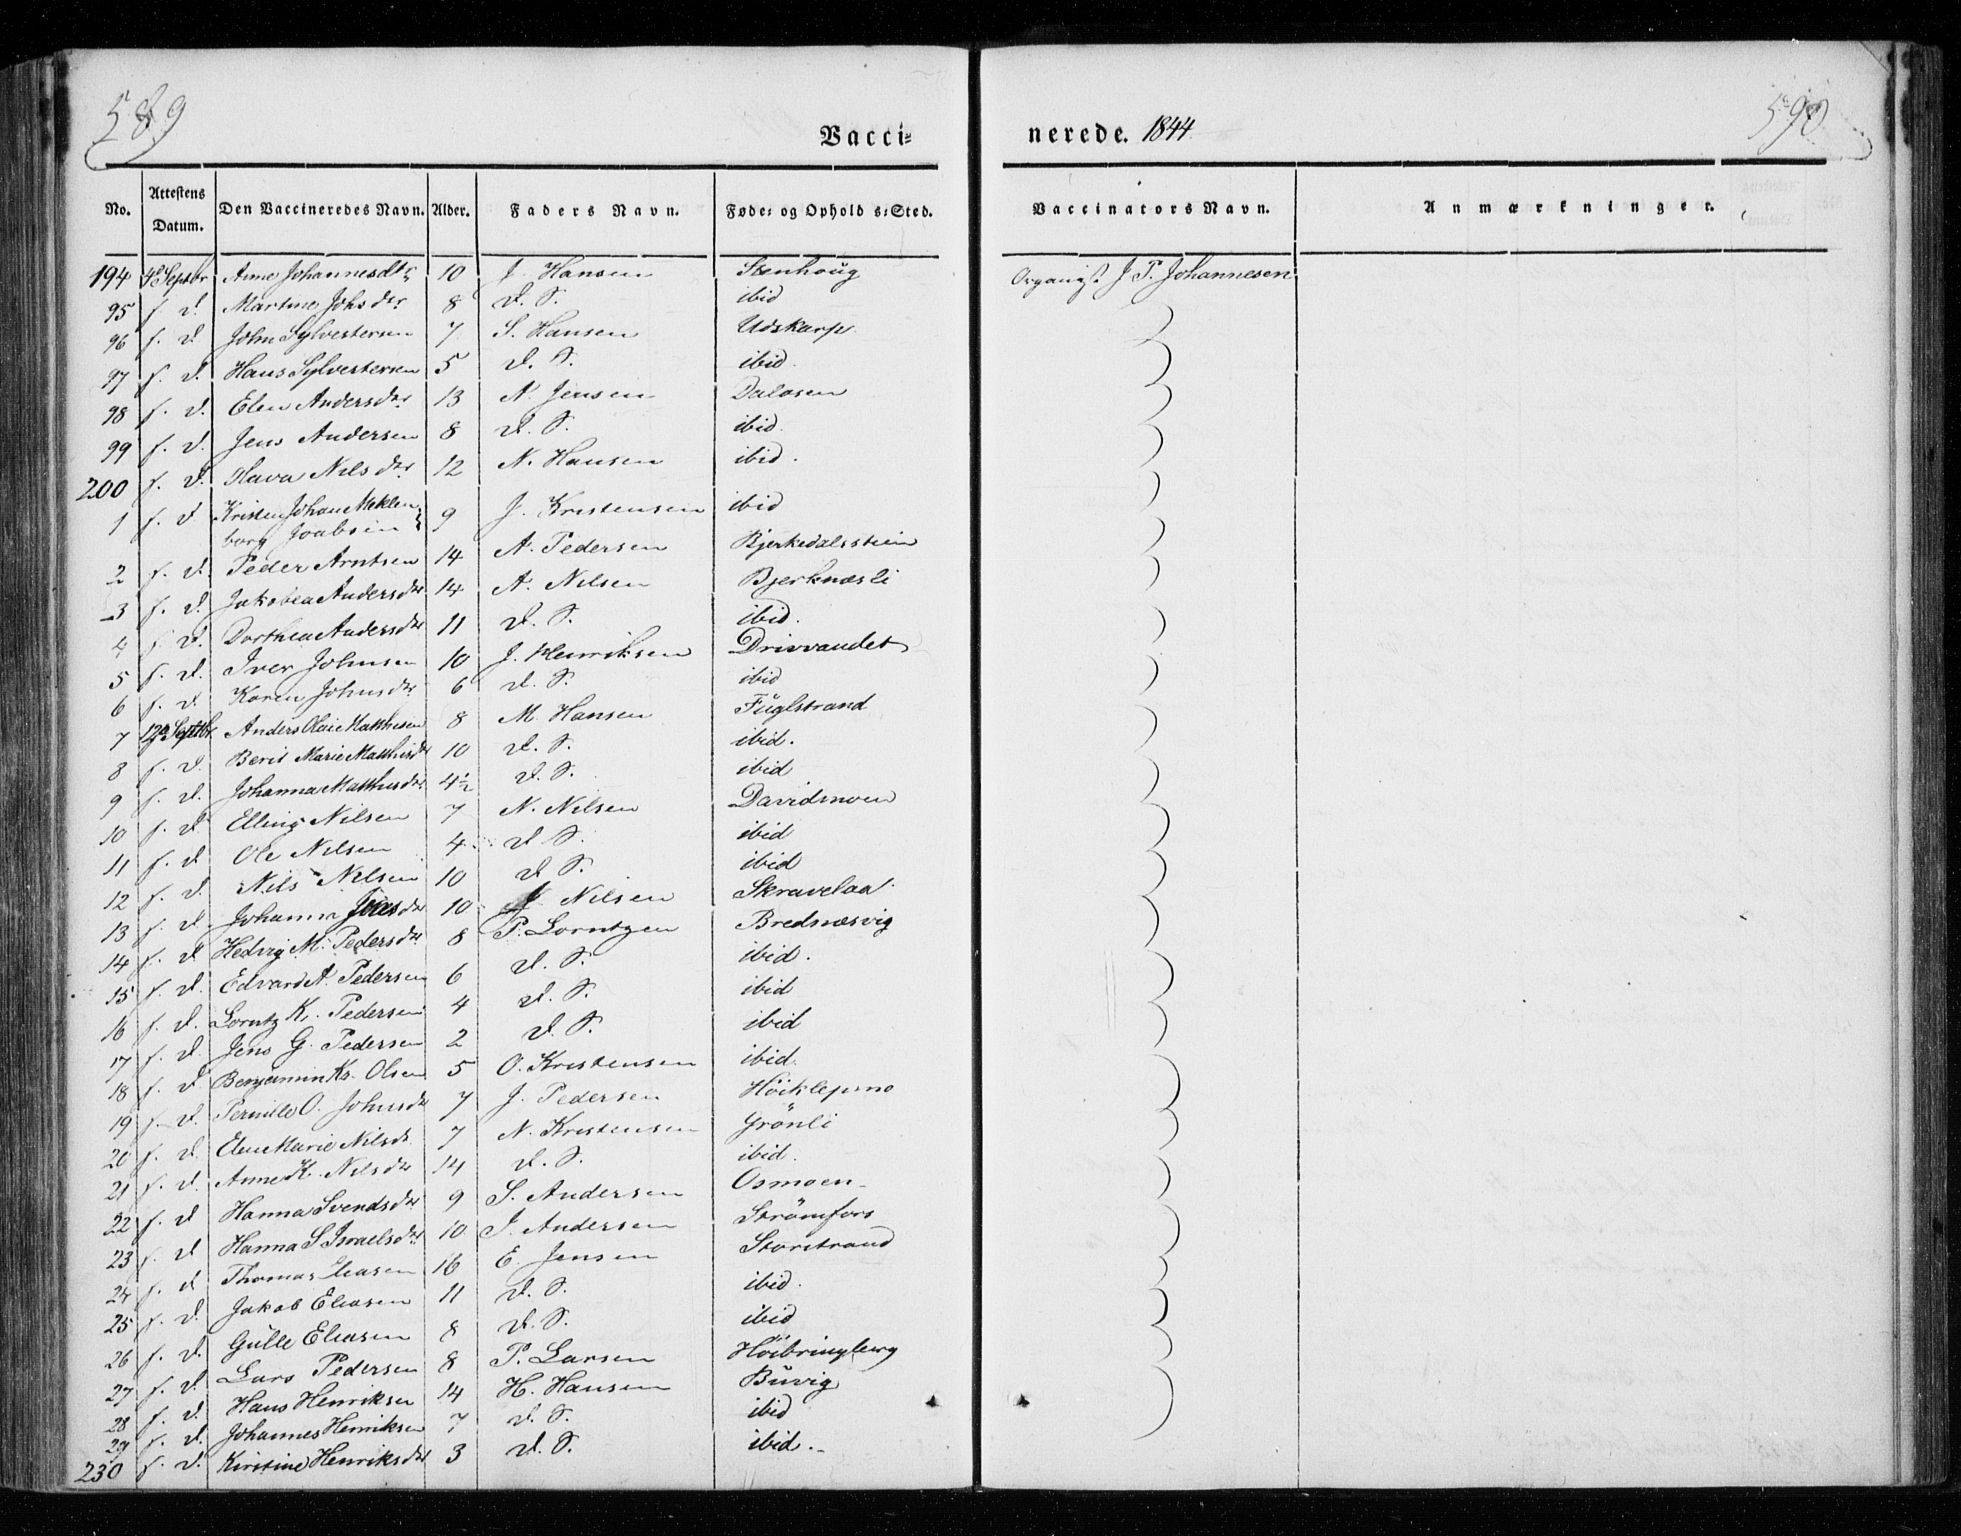 589
590
Vacci-
nerede. 1844
No. Attestens Datum. Den Vaccineredes Navn. Alder. Faders Navn. Føde- og Ophold s-Sted. Vaccinators Navn. Anmærkninger.
194 Septbr Anne Johannesdtr 10 J. Hansen Stenhoug Organist J. P. Johannesen
95 f. d. Martine Johsdtr 8 d. S. ibid
96 f. d. John Sylvestersen 7 S. Hansen Udskarp
97 f. d. Hans Sylvestersen 5 d. S. ibid.
98 f. d. Elen Andersdtr 13 Jensen Dalosen
99 f. d. Jens Andersen 8 d. S. ibid.
200 f. d. Hava Nilsdtr 12 N. Hansen ibid.
1 f. d. Kristen Johan Meklen
borg Joabsen 9 J. Kristensen ibid
2 f. d. Peder Arntsen 14 A. Pedersen Bjerkedalsstien
3 f. d. Jakobea Andersdtr 14 A. Nilsen Bjerknæsli
4 f. d. Dorthea Andersdtr 11 d. S. ibid.
5 f. d. Iver Johnsen 10 J. Henriksen Drisvandet
6 f. d. Karen Johnsdtr 6 d. S. ibid
7 12 Septbr Anders Olai Matthisen 8 M. Hansen Fuglstrand
8 f. d. Berit Marie Matthisdtr 10 d. S. ibid.
9 f. d. Johanna Matthisdtr 4½ d. S. ibid
10 f. d. Elling Nilsen 7 N. Nilsen Davidsmoen
11 f. d. Ole Nilsen 4 d. S. ibid
12 f. d. Nils Nilsen 10 d. S. ibid
13 f. d. Johanna Jensdtr 10 J. Nilsen Skravelaa
14 f. d. Hedvig M. Pedersdtr 8 P. Lorntzen Brednæsvig
15 f. d. Edvard A. Pedersen 6 d. S. ibid.
16 f. d. Lorntz K. Pedersen 4 d. S. ibid
17 f. d. Jens G. Pedersen 2 d. S. ibid
18 f. d. Benjamin Kr. Olsen 5 O. Kristensen ibid.
19 f. d. Pernille O. Johnsdtr 7 J. Pedersen
20 f. d. Elen Marie Nilsdtr 7 N. Kristensen Grönli
21 f. d. Anne K. Nilsdtr 14 d. S. ibid.
22 f. d. Hanna Svendsdtr 9 S. Andersen Osmoen
23 f. d. Hanna S. Israelsdtr 10 I. Andersen Strömfors
24 f. d. Thomas Eliasen 16 E. Jensen Storstrand
25 f. d. Jakob Eliasen 11 d. S. ibid.
26 f. d. Gulle Eliasen 8 d. S. ibid
27 f. d. Lars Pedersen 8 P. Larsen Höibringberg
28 f. d. Hans Henriksen 14 H. Hansen Buvig
29 f. d. Johannes Henriksen 7 d. S. ibid
230 f. d. Kirstine Henriksdtr 3 d. S. ibid.